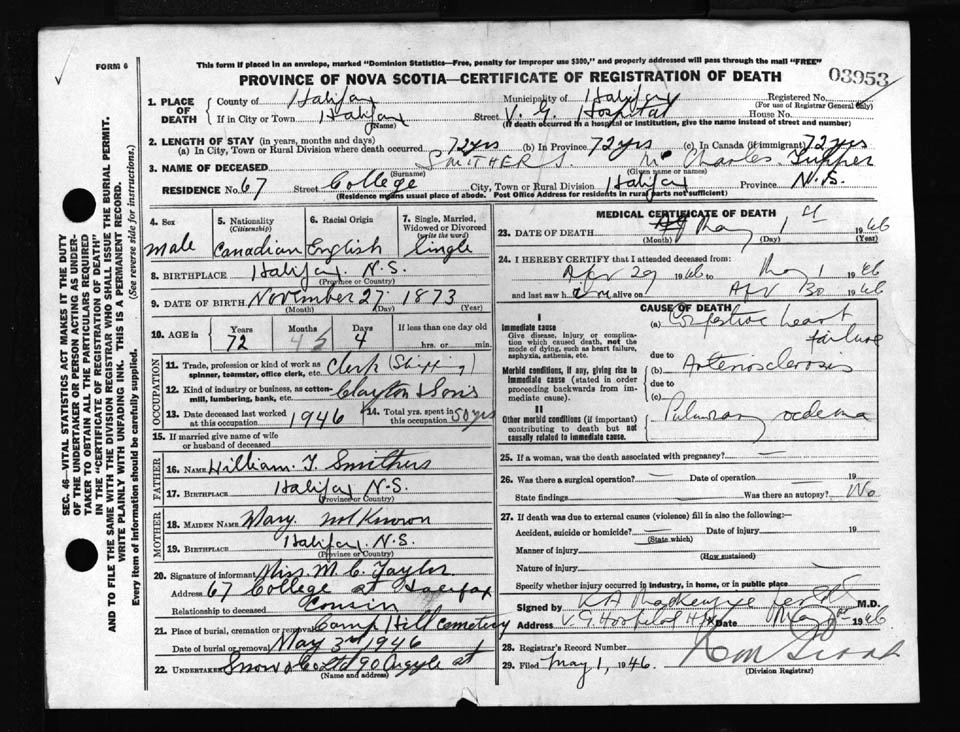 This form if placed in an envelope, marked “Dominion Statistics—Free, penalty for improper use $300,” and properly addressed will pass through the mail “FREE”
FORM 6
PROVINCE OF NOVA SCOTIA—CERTIFICATE OF REGISTRATION OF DEATH
03953
SEC. 46—VITAL STATISTICS ACT MAKES IT THE DUTY
OF THE UNDERTAKER OR PERSON ACTING AS UNDER-
TAKER TO OBTAIN ALL THE PARTICULARS REQUIRED
IN THE “CERTIFICATE OF REGISTRATION OF DEATH”
AND TO FILE THE SAME WITH THE DIVISION REGISTRAR WHO SHALL ISSUE THE BURIAL PERMIT.
WRITE PLAINLY WITH UNFADING INK. THIS IS A PERMANENT RECORD.
Every item of information should be carefully supplied. (See reverse side for instructions.)
1. PLACE OF DEATH County of Halifax Municipality of Halifax Registered No.
(For use of Registrar General only)
If in City or Town Halifax Street V. G. Hospital House No.
(Name) (If death occurred in a hospital or institution, give the name instead of street and number)
2. LENGTH OF STAY (in years, months and days)
(a) In City, Town or Rural Division where death occurred 72 yrs (b) In Province 72 yrs (c) In Canada (if immigrant) 72 yrs
3. NAME OF DECEASED SMITHERS. Charles Tupper
(Surname) (Given name or names)
RESIDENCE No. 67 Street College City, Town or Rural Division Halifax Province N.S.
(Residence means usual place of abode. Post Office Address for residents in rural parts not sufficient)
4. Sex Male
5. Nationality (Citizenship) Canadian
6. Racial Origin English
7. Single, Married, Widowed or Divorced (write the word) Single
8. BIRTHPLACE Halifax N.S.
(Province or Country)
9. DATE OF BIRTH November 27 1873
(Month) (Day) (Year)
10. AGE in Years 72 Months 5 Days 4 If less than one day old
hrs. or min.
OCCUPATION
11. Trade, profession or kind of work as spinner, teamster, office clerk, etc. Clerk (Shipping)
12. Kind of industry or business, as cotton-mill, lumbering, bank, etc. Clayton & Sons
13. Date deceased last worked at this occupation 1946 14. Total yrs. spent in this occupation 50 yrs
15. If married give name of wife or husband of deceased
FATHER
16. Name William T. Smithers
17. Birthplace Halifax N.S.
(Province or Country)
MOTHER
18. Maiden Name Mary. not Known
19. Birthplace Halifax N.S.
(Province or Country)
20. Signature of informant Miss. M. C. Taylor
Address 67 College st Halifax
Relationship to deceased Cousin
21. Place of burial, cremation or removal Camp Hill Cemetery
Date of burial or removal May 3rd 1946
22. Undertaker Snow & Co Ltd 90 Argyle st
(Name and address)
MEDICAL CERTIFICATE OF DEATH
23. DATE OF DEATH May 1st 1946
(Month) (Day) (Year)
24. I HEREBY CERTIFY that I attended deceased from:
Apr 29 1946 to May 1 1946
and last saw him alive on Apr 30 1946
CAUSE OF DEATH
I
Immediate cause
Give disease, injury or complication which caused death, not the mode of dying, such as heart failure, asphyxia, asthenia, etc.
(a) Congestive heart failure
due to
Morbid conditions, if any, giving rise to immediate cause (stated in order proceeding backwards from immediate cause).
(b) Arteriosclerosis
due to
(c)
II
Other morbid conditions (if important) contributing to death but not causally related to immediate cause.
Pulmonary oedema
25. If a woman, was the death associated with pregnancy? —
26. Was there a surgical operation? — Date of operation — 19
State findings Was there an autopsy? No
27. If death was due to external causes (violence) fill in also the following:—
Accident, suicide or homicide? Date of injury 19
(State which)
Manner of injury
(How sustained)
Nature of injury
Specify whether injury occurred in industry, in home, or in public place
Signed by M.D.
Address V.G. Hospital Hfx Date May 1st 1946
28. Registrar's Record Number
29. Filed May 1, 1946.
(Division Registrar)